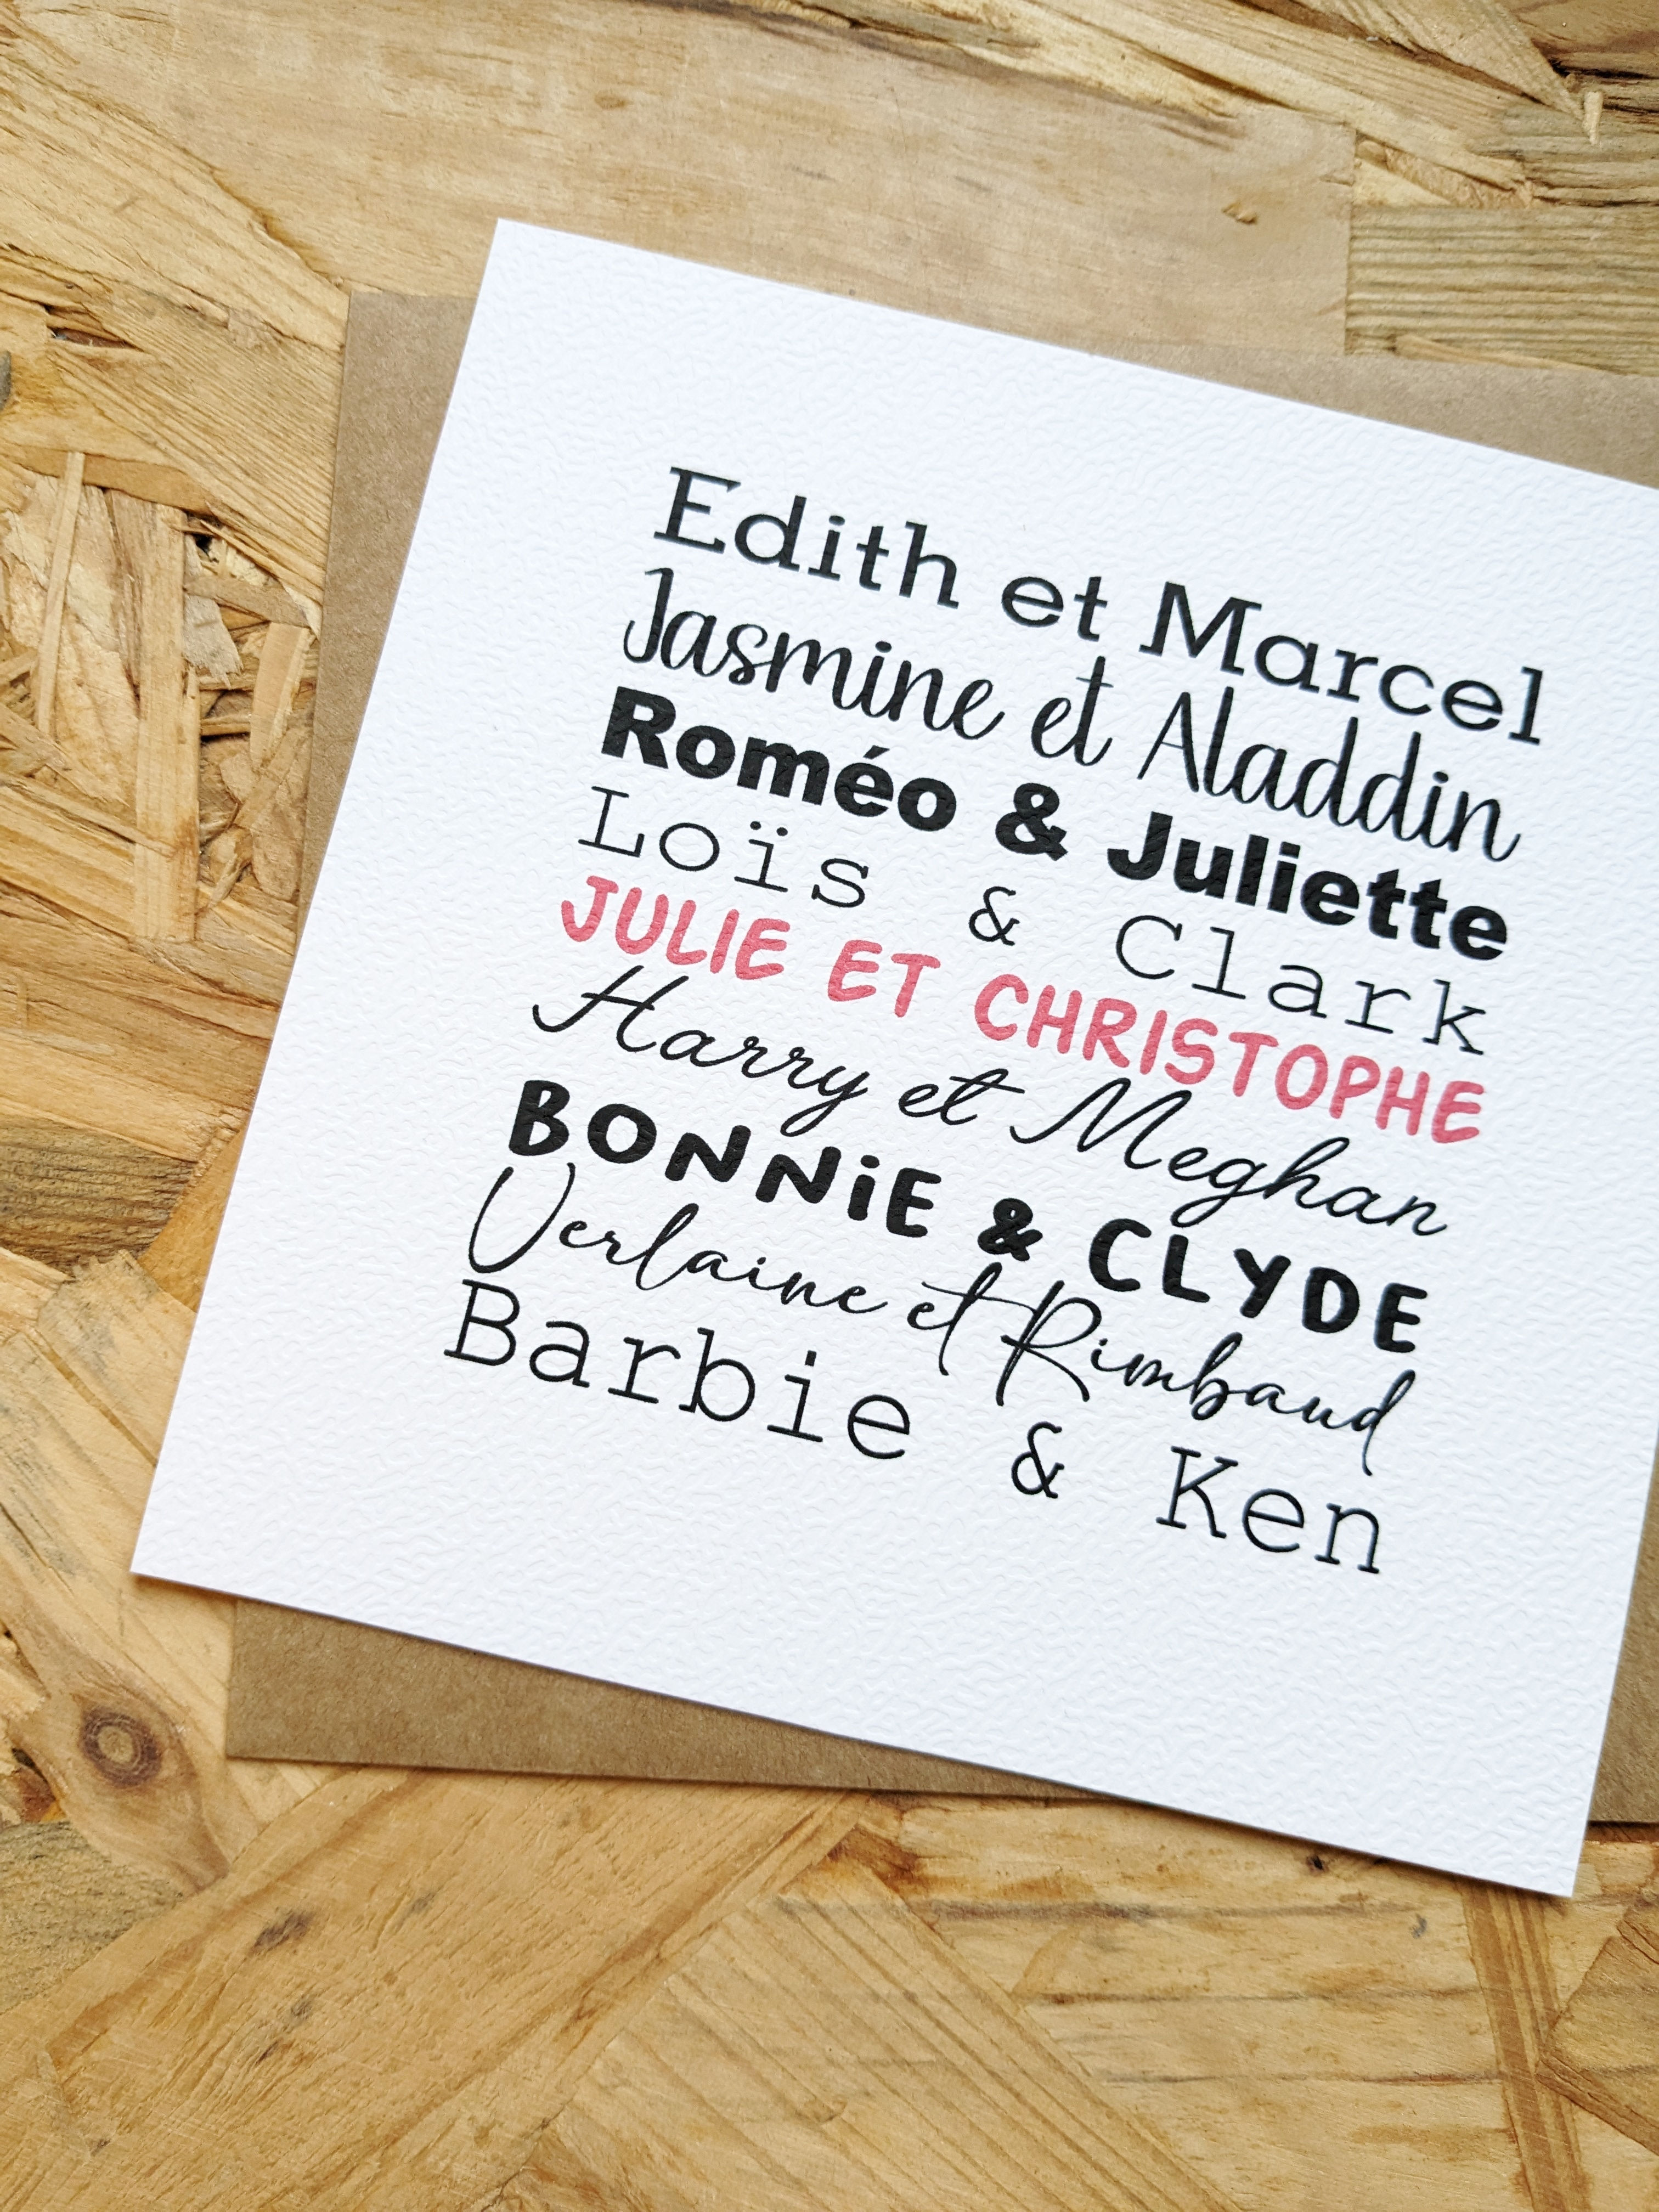 Edith et Marcel
Jasmine et Aladdin
Roméo & Juliette
Loïs & Clark
JULIE ET CHRISTOPHE
Harry et Meghan
BONNiE & CLYDE
Verlaine et Rimbaud
Barbie & Ken